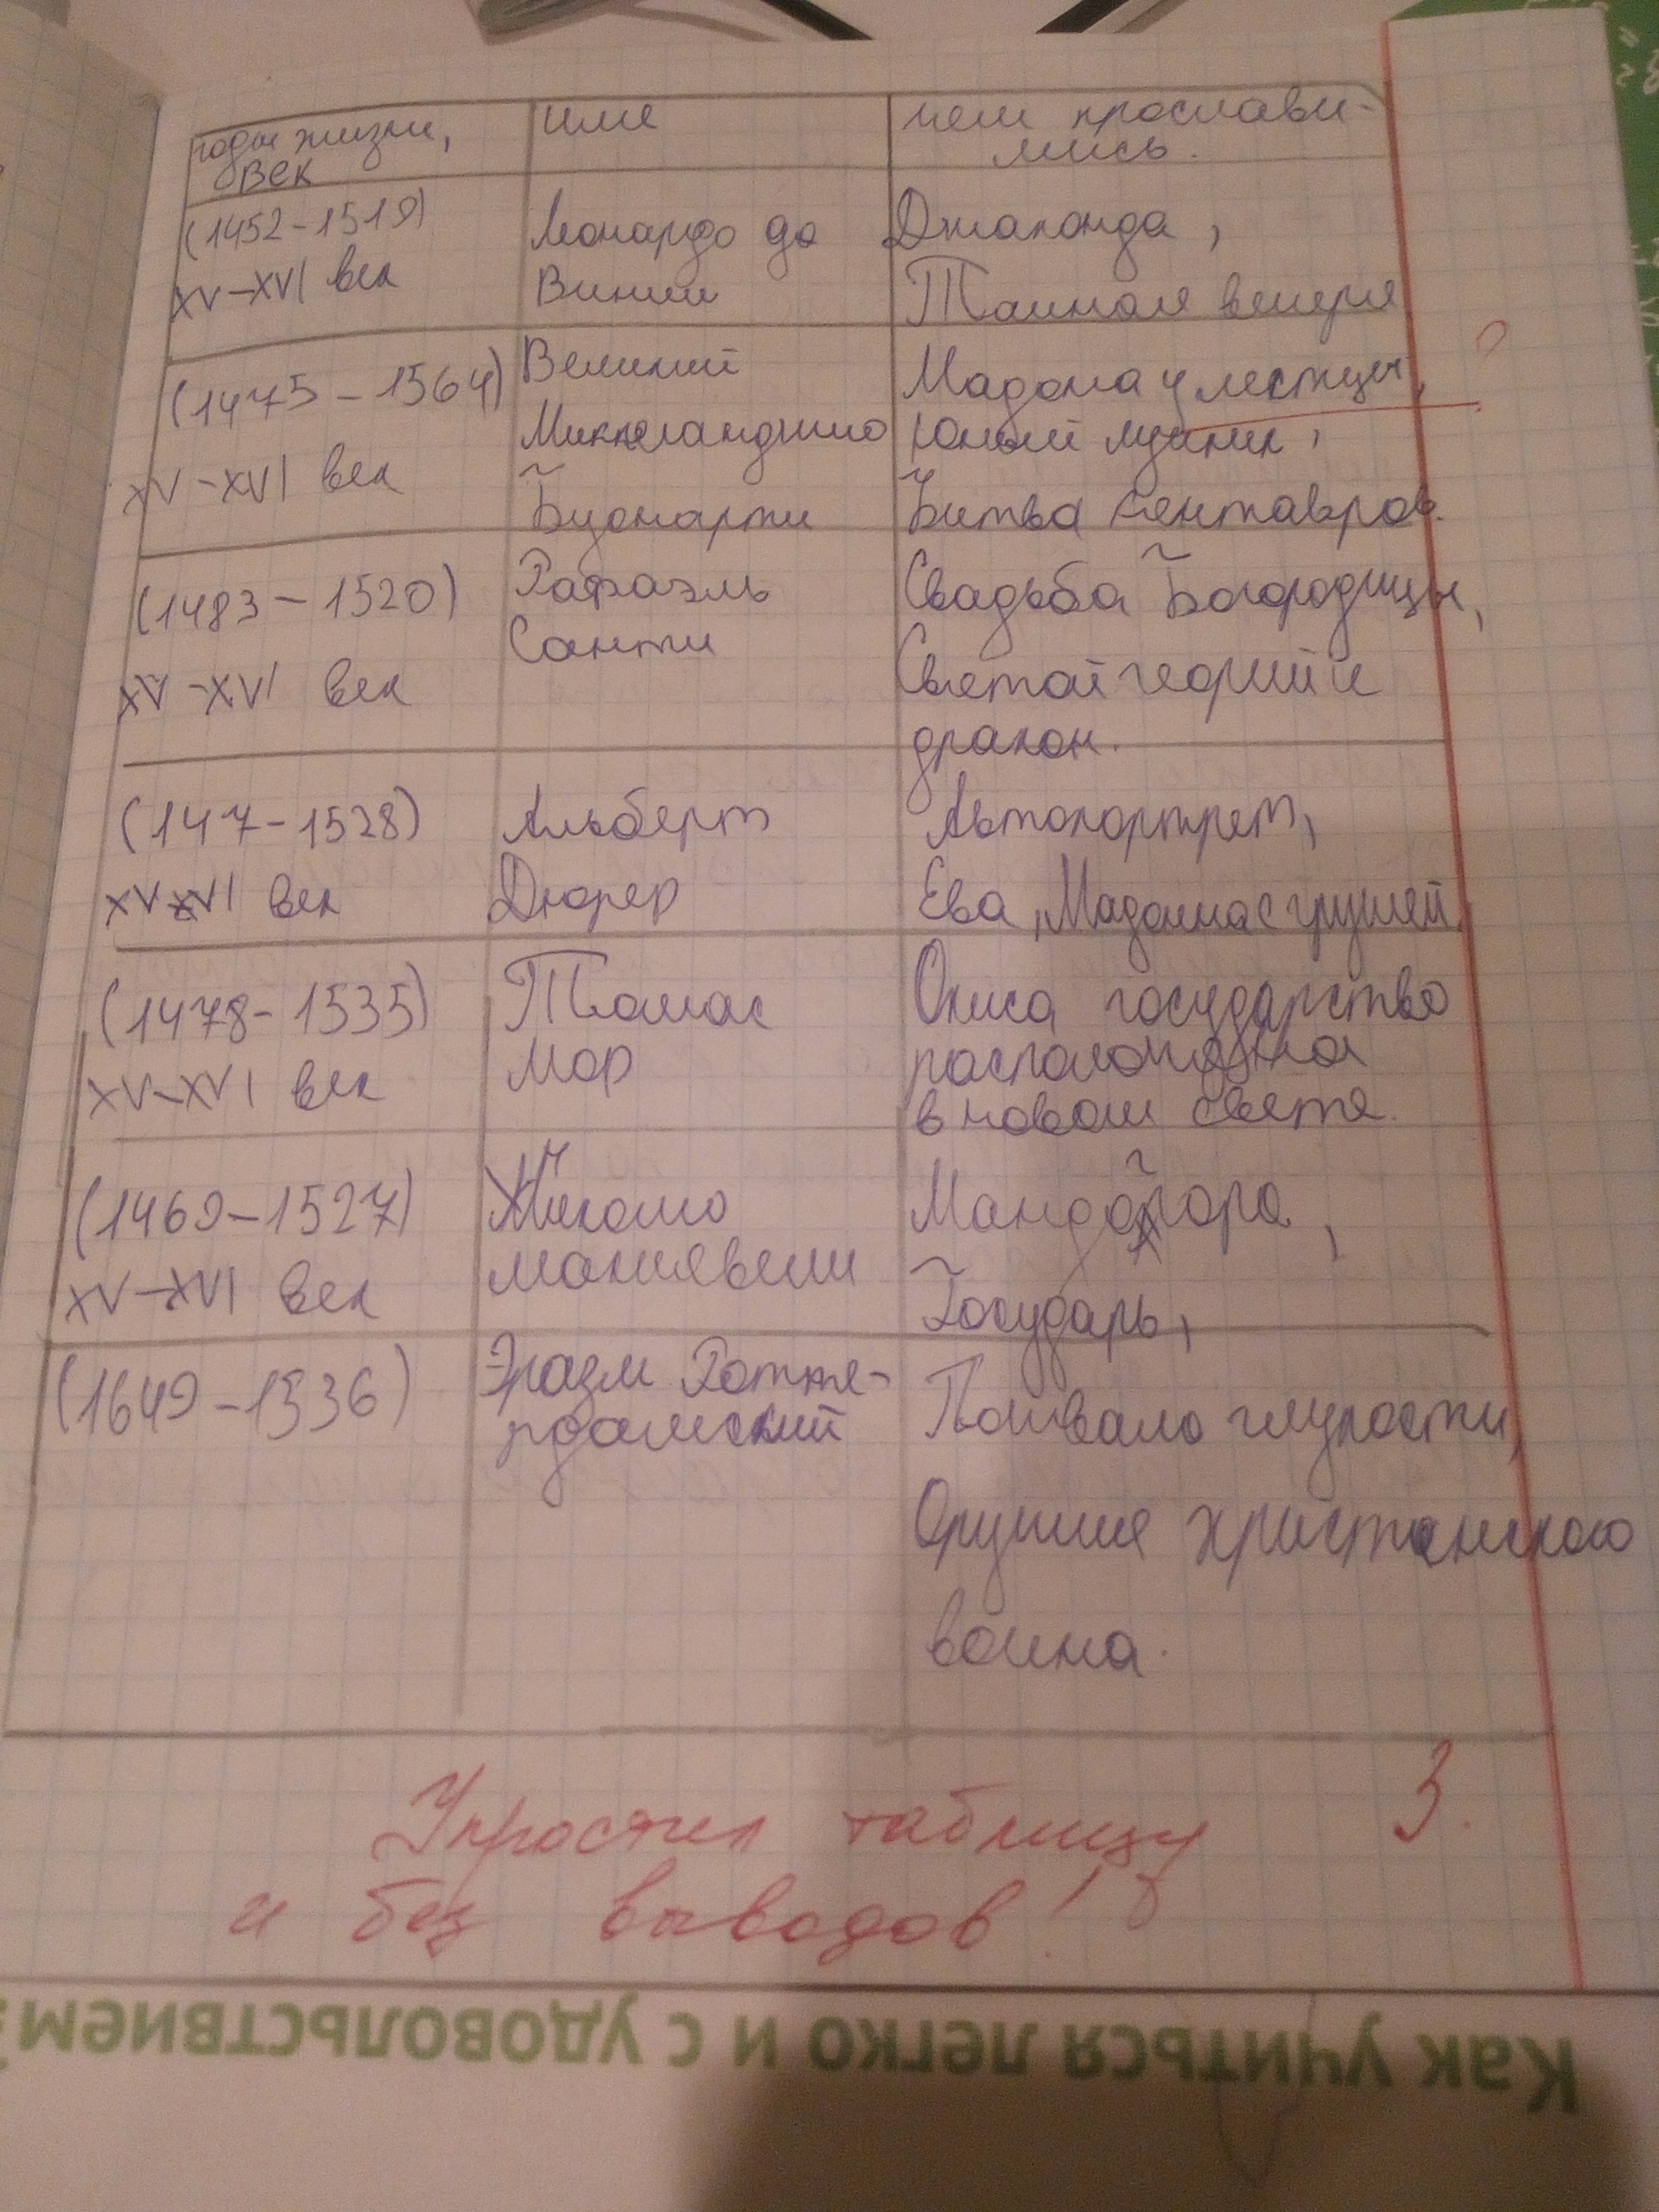 годы жизни,
век
име
чем прослави-
лись.
(1452-1519)
XV-XVI век
Леонардо да
Винчи
Джаконда,
Тайная вечеря
(1475-1564)
XV-XVI век
Великий
Микеланджило
Буонарти
Мадона у лестцы,
Юный лучник,
Битва кентавров.
(1483-1520)
XV-XVI век
Рафаэль
Санти
Свадьба Богородицы,
Светой георгий и
дракон.
(147-1528)
XV-XVI век
Альберт
Дюрер
Автопортрет,
Ева, Мадонна с грушей.
(1478-1535)
XV-XVI век
Томас
Мор
Описа государство
в новом свете.
(1469-1527)
XV-XVI век
Николо
макиявели
Государь,
(1649-1536)
Эразм Ротте-
рдамский
Похвало глупости,
Оружие христанского
воина.
Упростил таблицу
3.
и без выводов!
Как учиться легко и с удовольствием?